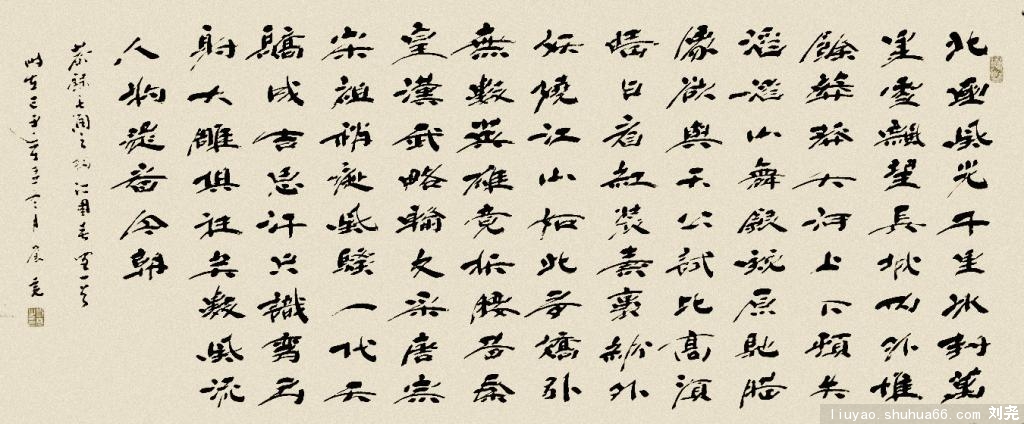 北國風光千里冰封萬
里雪飄望長城內外惟
餘莽莽大河上下頓失
滔滔山舞銀蛇原馳臘
像欲與天公試比高須
晴日看紅裝素裹紛外
妖嬈江山如此多嬌引
無數英雄競折腰昔秦
皇漢武略輸文采唐宗
宋祖稍遜風騷一代天
驕成吉思汗只識彎弓
射大雕俱往矣數風流
人物還看今朝
恭錄毛潤之詞沁園春雪一首
時在
liuyao.shuhua66.com 刘尧